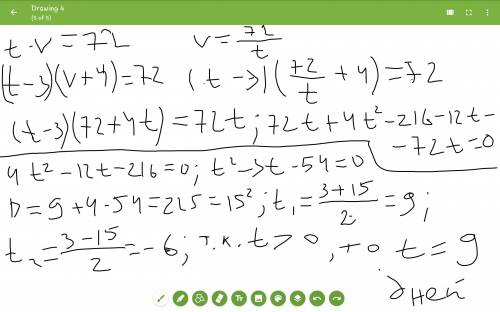 Drawing 4
(5 of 5)
t · v = 72 v = 72/t
(t-3)(v+4)=72 (t-3)(72/t + 4) = 72
(t-3)(72+4t) = 72t; 72t + 4t² - 216 - 12t -
- 72t = 0
4t² - 12t - 216 = 0; t² - 3t - 54 = 0
D = 9 + 4 · 54 = 225 = 15²; t₁ = (3+15)/2 = 9;
t₂ = (3-15)/2 = -6; т.к. t > 0, то t = 9
дней